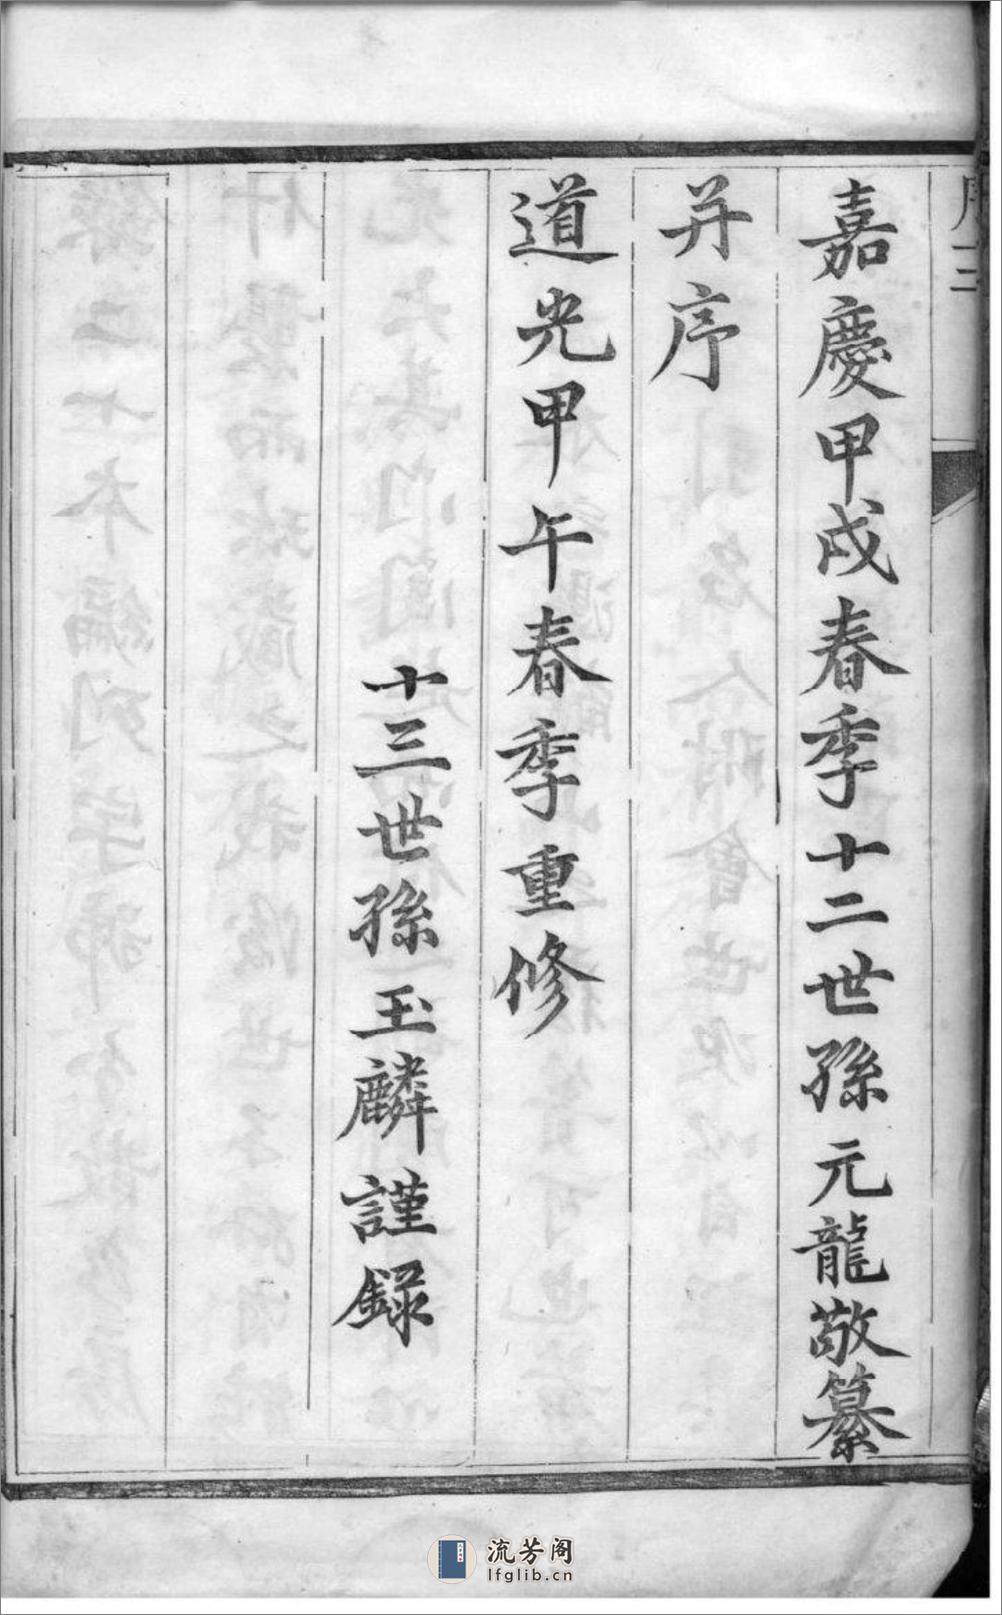 嘉慶甲戌春季十二世孫元龍敬纂
并序
道光甲午春季重修
十三世孫玉麟謹錄
流芳阁
lfglib.cn